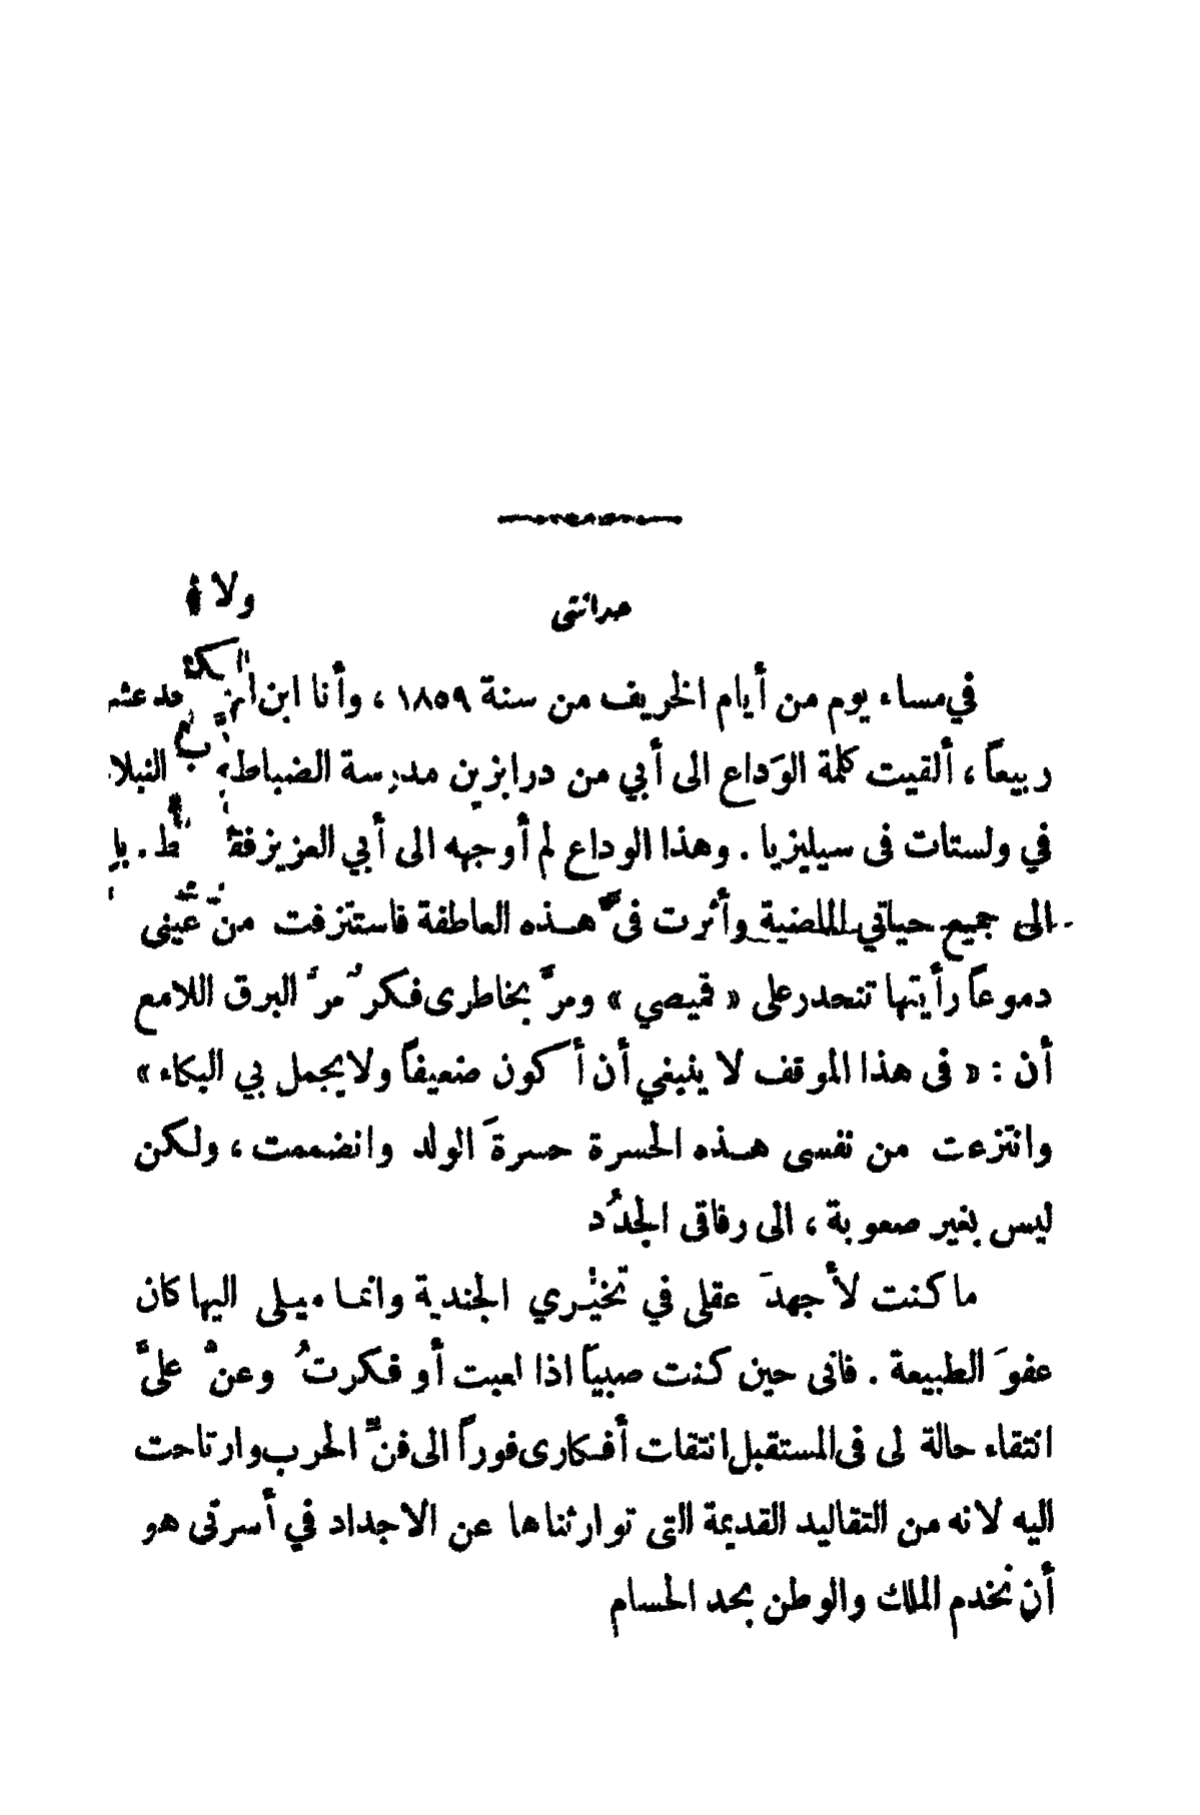 حداثتى
في مساء يوم من أيام الخريف من سنة ١٨٥٩ ، وأنا ابن
ربيعاً ، ألقيت كلمة الوَداع الى أبي من درابزين مدرسة الضباط
في ولستات فى سيليزيا . وهذا الوداع لم أوجهه الى أبي العزيز فقط .
الى جميع حياتي الماضية وأثرت فىَّ هـذه العاطفة فاستنزفت منْ عَينى
دموعاً رأيتها تنحدر على « قميصي » ومرَّ بخاطرى فكرٌ مرَّ البرق اللامع
أن : « فى هذا الموقف لا ينبغي أن أكون ضعيفاً ولا يجمل بي البكاء »
وانتزعت من نفسى هـذه الحسرة حسرةَ الولد وانضممت ، ولكن
ليس بغير صعوبة ، الى رفاقى الجدُد
ما كنت لأجهدَ عقلى في تخيُّري الجندية وانمـا ميـلى اليها كان
عفوَ الطبيعة . فانى حين كنت صبياً اذا لعبت أو فكرتُ وعنَّ علىَّ
انتقاء حالة لى فى المستقبل انتقلت أفكارى فوراً الى فنِّ الحرب وارتاحت
اليه لانه من التقاليد القديمة التى توارثناها عن الاجداد في أسرتى هو
أن نخدم الملك والوطن بحد الحسام